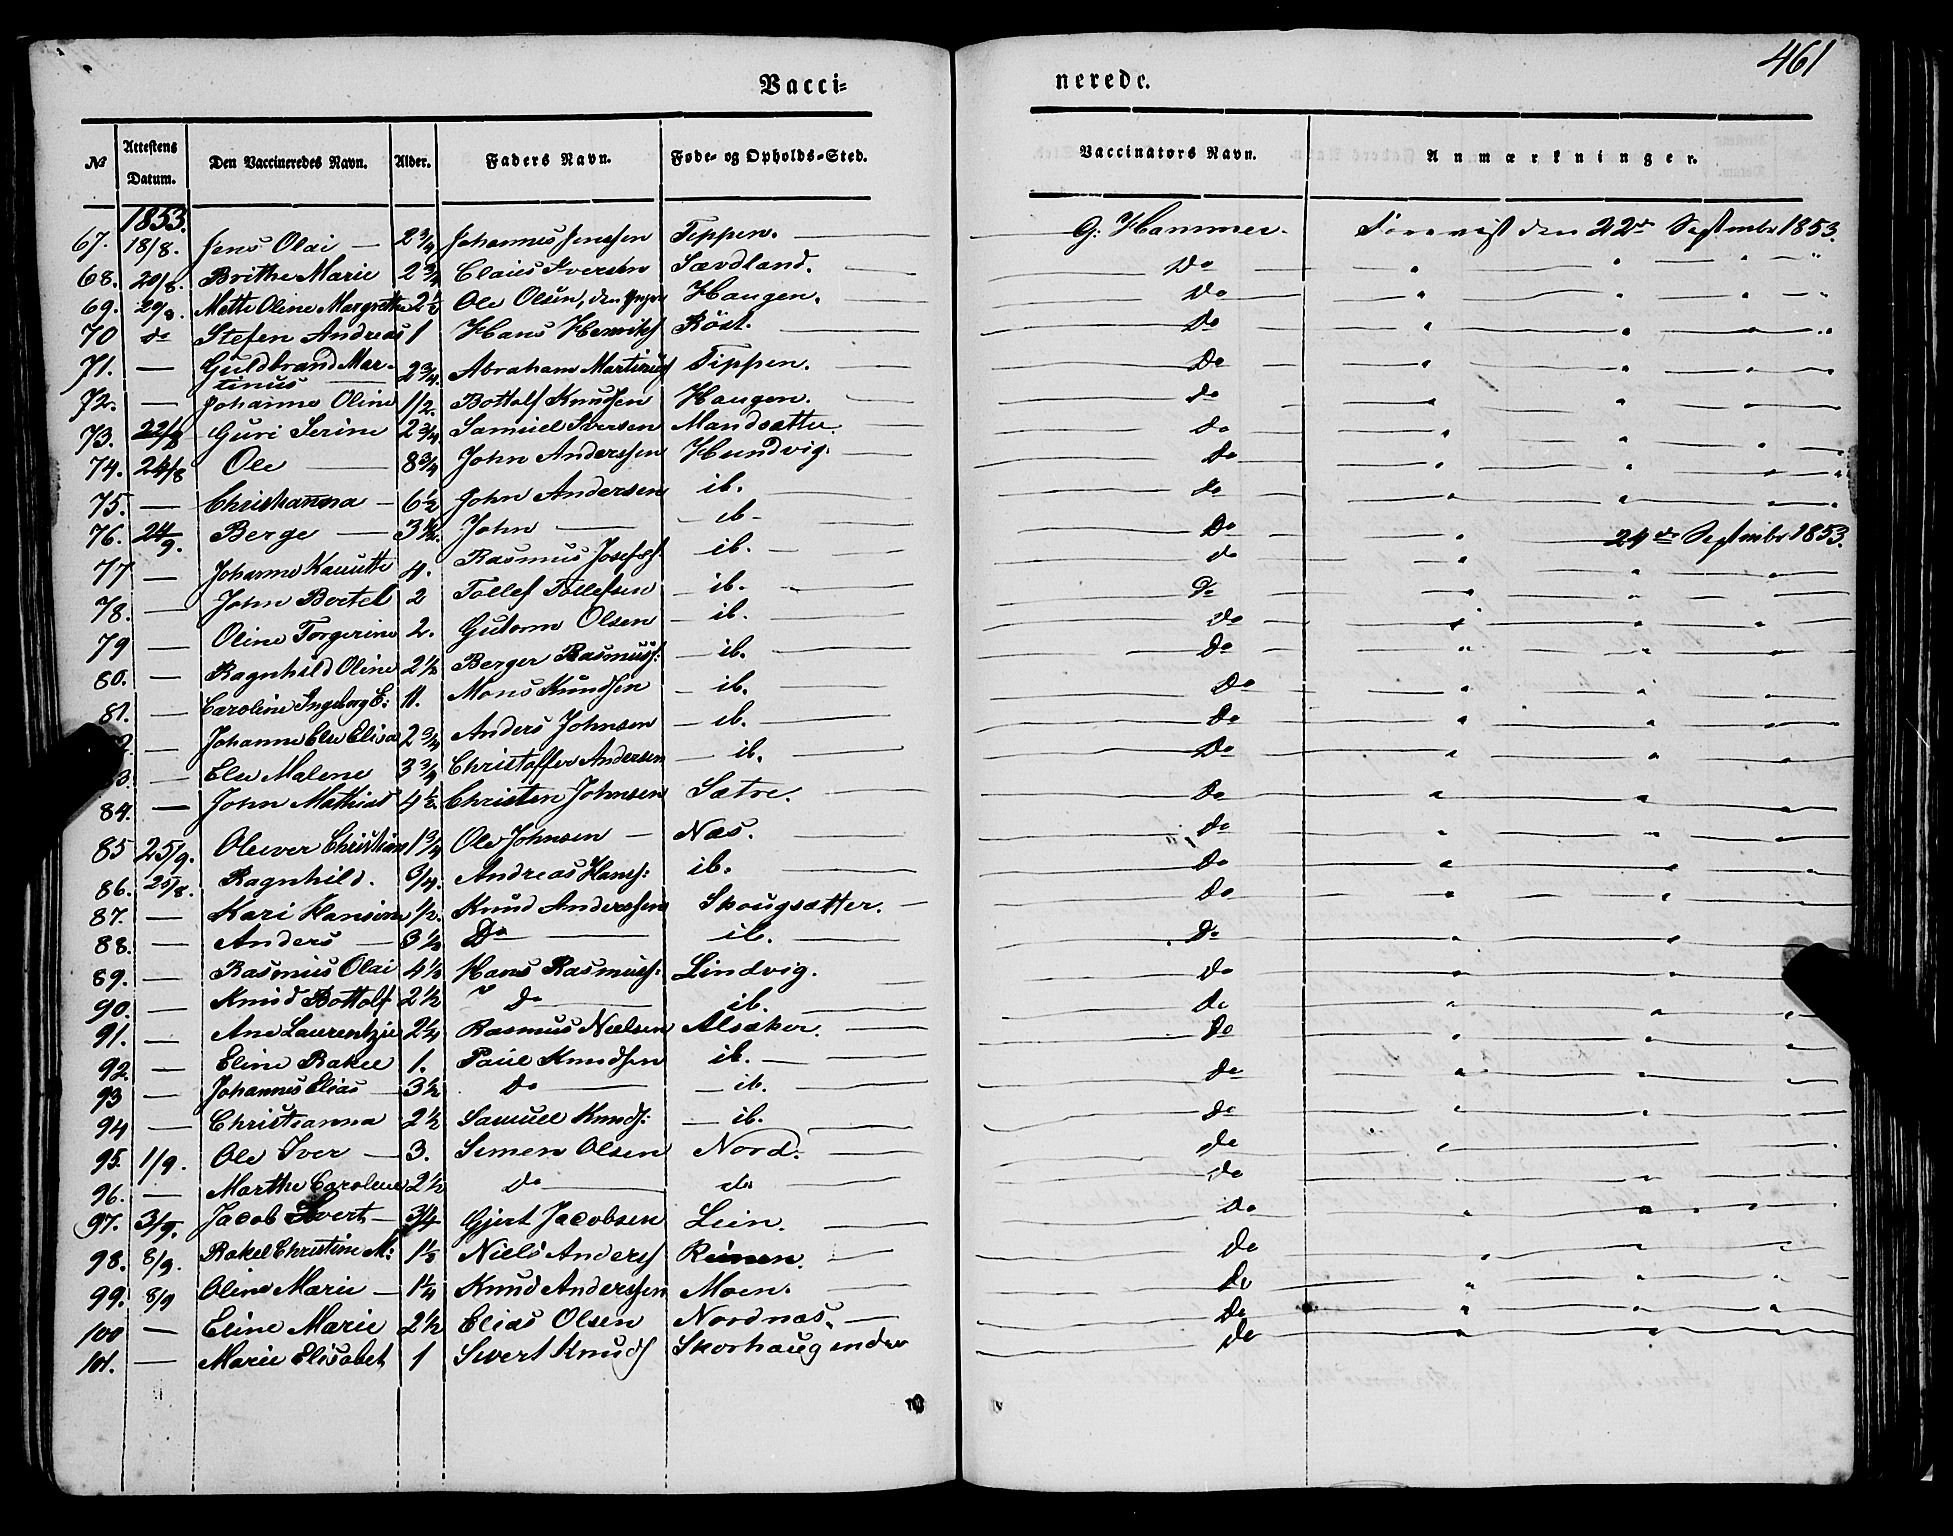 461
Vacci= nerede.
No | Attestens Datum. | Den Vaccineredes Navn. | Alder. | Faders Navn. | Føde- og Opholds-Sted. | Vaccinators Navn. | Anmærkninger.
1853.
67. 18/8. Jens Olai — 2 3/4 Johannes Jenssen Teppen. — G: Hammer. Forevist den 22de September 1853.
68. 20/8. Brithe Marie 2 3/4 Claus Iversen Sævdland. — Do " " "
69. 29/8. Mette Oline Margrethe 2 1/2 Ole Olsen, den Yngre Haugen. — Do " " "
70 do Stefen Andreas 1 Hans Henriks Röst. — Do " " "
71. — Guldbrand Mar-
tinus — 2 3/4. Abraham Martinus Tippen. — Do " " "
72. — Johanne Oline 1/2. Bottolf Knudsen Haugen. — do " " "
73. 22/8 Guri Serine 2 3/4 Samuel Iversen Mandsætter. do " " "
74. 24/8 Ole — 8 3/4 John Anderssen Hundvig. Do " " "
75. — Christianna — 6 1/2 John Andersen ib. — do " " "
76. 24/9. Berge — 3 1/2. John — ib — Do " 24de September 1853.
77 — Johanne Knutte 4. Rasmus Josefs: ib. — do " "
78. — John Bertel 2 Tollef Tollefsen — ib. — Do " "
79 — Oline Torgerine 2. Gutorm Olsen — ib. — Do " "
80. — Ragnhild Oline 2 1/2 Berger Rasmuss: — ib. — Do " "
81. — Caroline Ingeborg E: 11. Mons Knudsen — ib. — Do " "
— Johanne Elee Elisa 2 3/4 Anders Johnsen — ib. — Do " "
3. — Elee Malene 3 3/4 Christoffer Andersen — ib. — Do " "
84. — John Mathias 4 1/2. Christen Johnsen Sætre. — Do " "
85 25/9. Oliver Christian 1 3/4 Ole Johnsen — Næs. — do " "
86. 25/8. Ragnhild. 3/4. Andreas Hans: ib. — Do " "
87. — Kari Hansine 1/2. Knud Anderssen Skougsætter. — Do " "
88. — Anders — 3 1/2 Do — ib. — Do " "
89. — Rasmus Olai 4 1/2 Hans Rasmuss: Lindvig. do " "
90. — Knud Bottolf 2 1/2 " do — ib. — do " "
91. — Ane Laurentzie 2 1/4 Rasmus Nielsen Alsaker. — Do " "
92. — Eline Rakel 1. Paul Knudsen ib. — do " "
93 — Johannes Elias — 3 1/2 do — — ib. — do " "
94 — Christianna 2 1/2 Samuel Knuds: — ib. — do " "
95. 1/9. Ole Iver — 3. Simen Olsen Nord. — do " "
96. — Marthe Caroline 2 1/2 do — do — Do " "
97. 3/9. Jacob Sivert — 3/4 Gjert Jacobsen Lein. — do " "
98. 8/9. Rakel Christine M: 1 1/2 Niels Anderss Reinen. — do " "
99. 8/9 Oline Marie — 1 1/4 Knud Anderssen Moen. — do " "
100 — Eline Marie 2 1/2 Elias Olsen Nordnæs. — Do " "
101. — Marie Elisabet 1 Sivert Knuds Skorhaug indre do " "